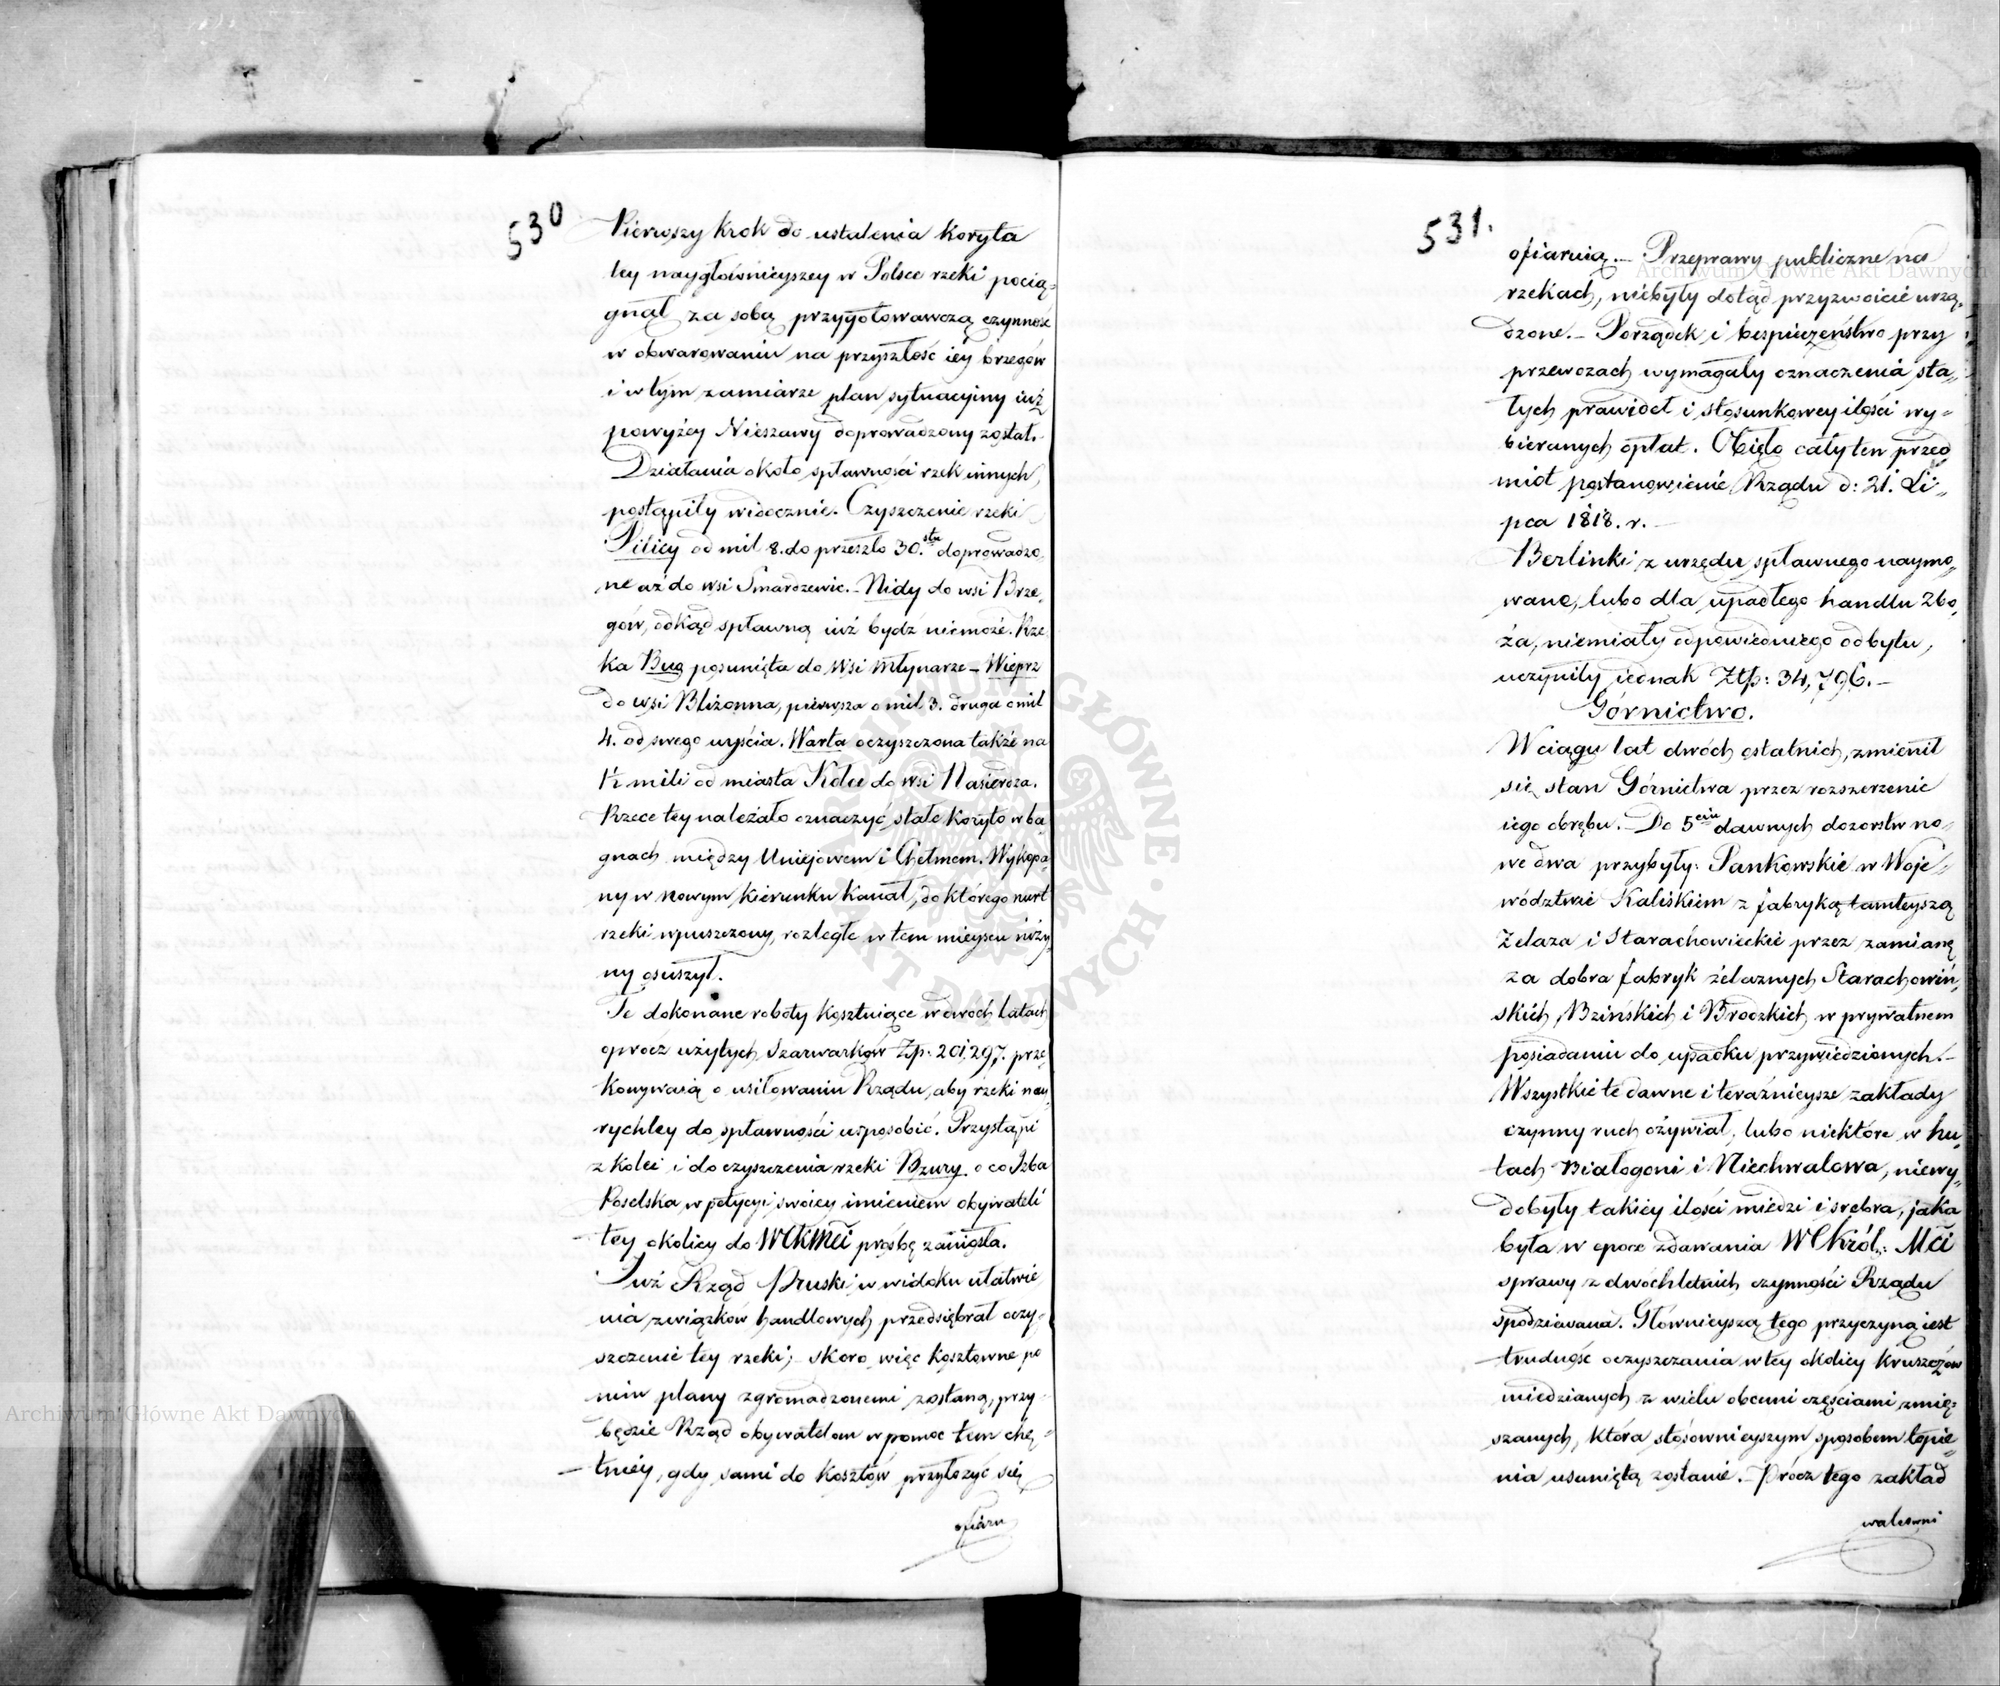 530
Pierwszy krok do ustalenia koryta
tey naygłównieyszey w Polsce rzeki pocią-
gnął za sobą przygotowawczą czynność
w obwarowaniu na przyszłość iey brzegów
i w tym zamiarze plan sytuacyiny iuż
powyżey Nieszawy doprowadzony został.
Działania około spławności rzek innych,
postąpiły widocznie. Czyszczenie rzeki
Pilicy od mil 8. do przeszło 30.stu doprowadzo-
ne aż do wsi Smardzewic. - Nidy do wsi Brze-
gów, odkąd spławną iuż bydz niemoże. Rze
ka Bug posunięta do wsi Młynarze - Wieprz
do wsi Bliżonna, pierwsza o mil 3. druga o mil
4. od swego uyścia. Warta oczyszczona także na
1½ mili od miasta Kołce do wsi Nasierdza.
Rzece tey należało oznaczyć stałe koryto w ba-
gnach między Uniejowem i Chełmem. Wykopa-
ny w nowym kierunku kanał, do którego nurt
rzeki wpuszczony, rozległe w tem mieyscu niży-
ny osuszył.
Te dokonane roboty kosztuiące w dwóch latach
oprócz użytych Szarwarków Zp: 201,297. prze
konywaią o usiłowaniu Rządu, aby rzeki nay-
rychley do spławności usposobić. Przystąpi
z kolei i do czyszczenia rzeki Bzury, o co Izba
Poselska w petycyi swoiey imieniem obywateli
tey okolicy do WCKMci prośbę zaniosła.
Już Rząd Pruski w widoku ułatwie
nia związków handlowych przedsiębrał oczy-
szczenie tey rzeki; skoro więc kosztowne po
nim plany zgromadzonemi zostaną, przy-
będzie Rząd obywatelom w pomoc tem chę-
tniey, gdy sami do kosztów przyłożyć się
ofiaru
531.
ofiaruią. - Przeprawy publiczne na
rzekach, niebyły dotąd przyzwoicie urzą-
dzone. - Porządek i bespieczeństwo przy
przewozach wymagały oznaczenia sta-
łych prawideł i stosunkowey ilości wy-
bieranych opłat. Obięło cały ten przed
miot postanowienie Rządu d: 21. Li-
pca 1818. r. -
Berlinki z urzędu spławnego naymo-
wane, lubo dla upadłego handlu zbo-
ża, niemiały odpowiedniego odbytu,
uczyniły iednak Złp: 34,796. -
Górnictwo.
W ciągu lat dwóch ostatnich, zmienił
się stan Górnictwa przez rozszerzenie
iego obrębu. - Do 5ciu dawnych dozorstw no-
we dwa przybyły: Pankowskie w Woje-
wództwie Kaliskiem z fabryką tamteyszą
żelaza i Starachowieckie przez zamianę
za dobra fabryk żelaznych Starachowiń-
skich, Bzińskich i Brodzkich w prywatnem
posiadaniu do upadku przywiedzionych. -
Wszystkie te dawne i teraźnieysze zakłady
czynny ruch ożywiał, lubo niektóre w hu-
tach Białogoni i Niechwalowa, niewy-
dobyły takiey ilości miedzi i srebra, jaka
była w epoce zdawania WCKról: Mci
sprawy z dwóchletnich czynności Rządu
spodziavana. Głównieyszą tego przyczyną iest
trudność oczyszczania w tey okolicy kruszców
miedzianych z wielu obcemi częściami zmię-
szanych, która stósownieyszym sposobem topie-
nia usuniętą zostanie. - Prócz tego zakład
walcowni
Archiwum Główne Akt Dawnych
Archiwum Główne Akt Dawnych
ARCHIWUM GŁÓWNE AKT DAWNYCH